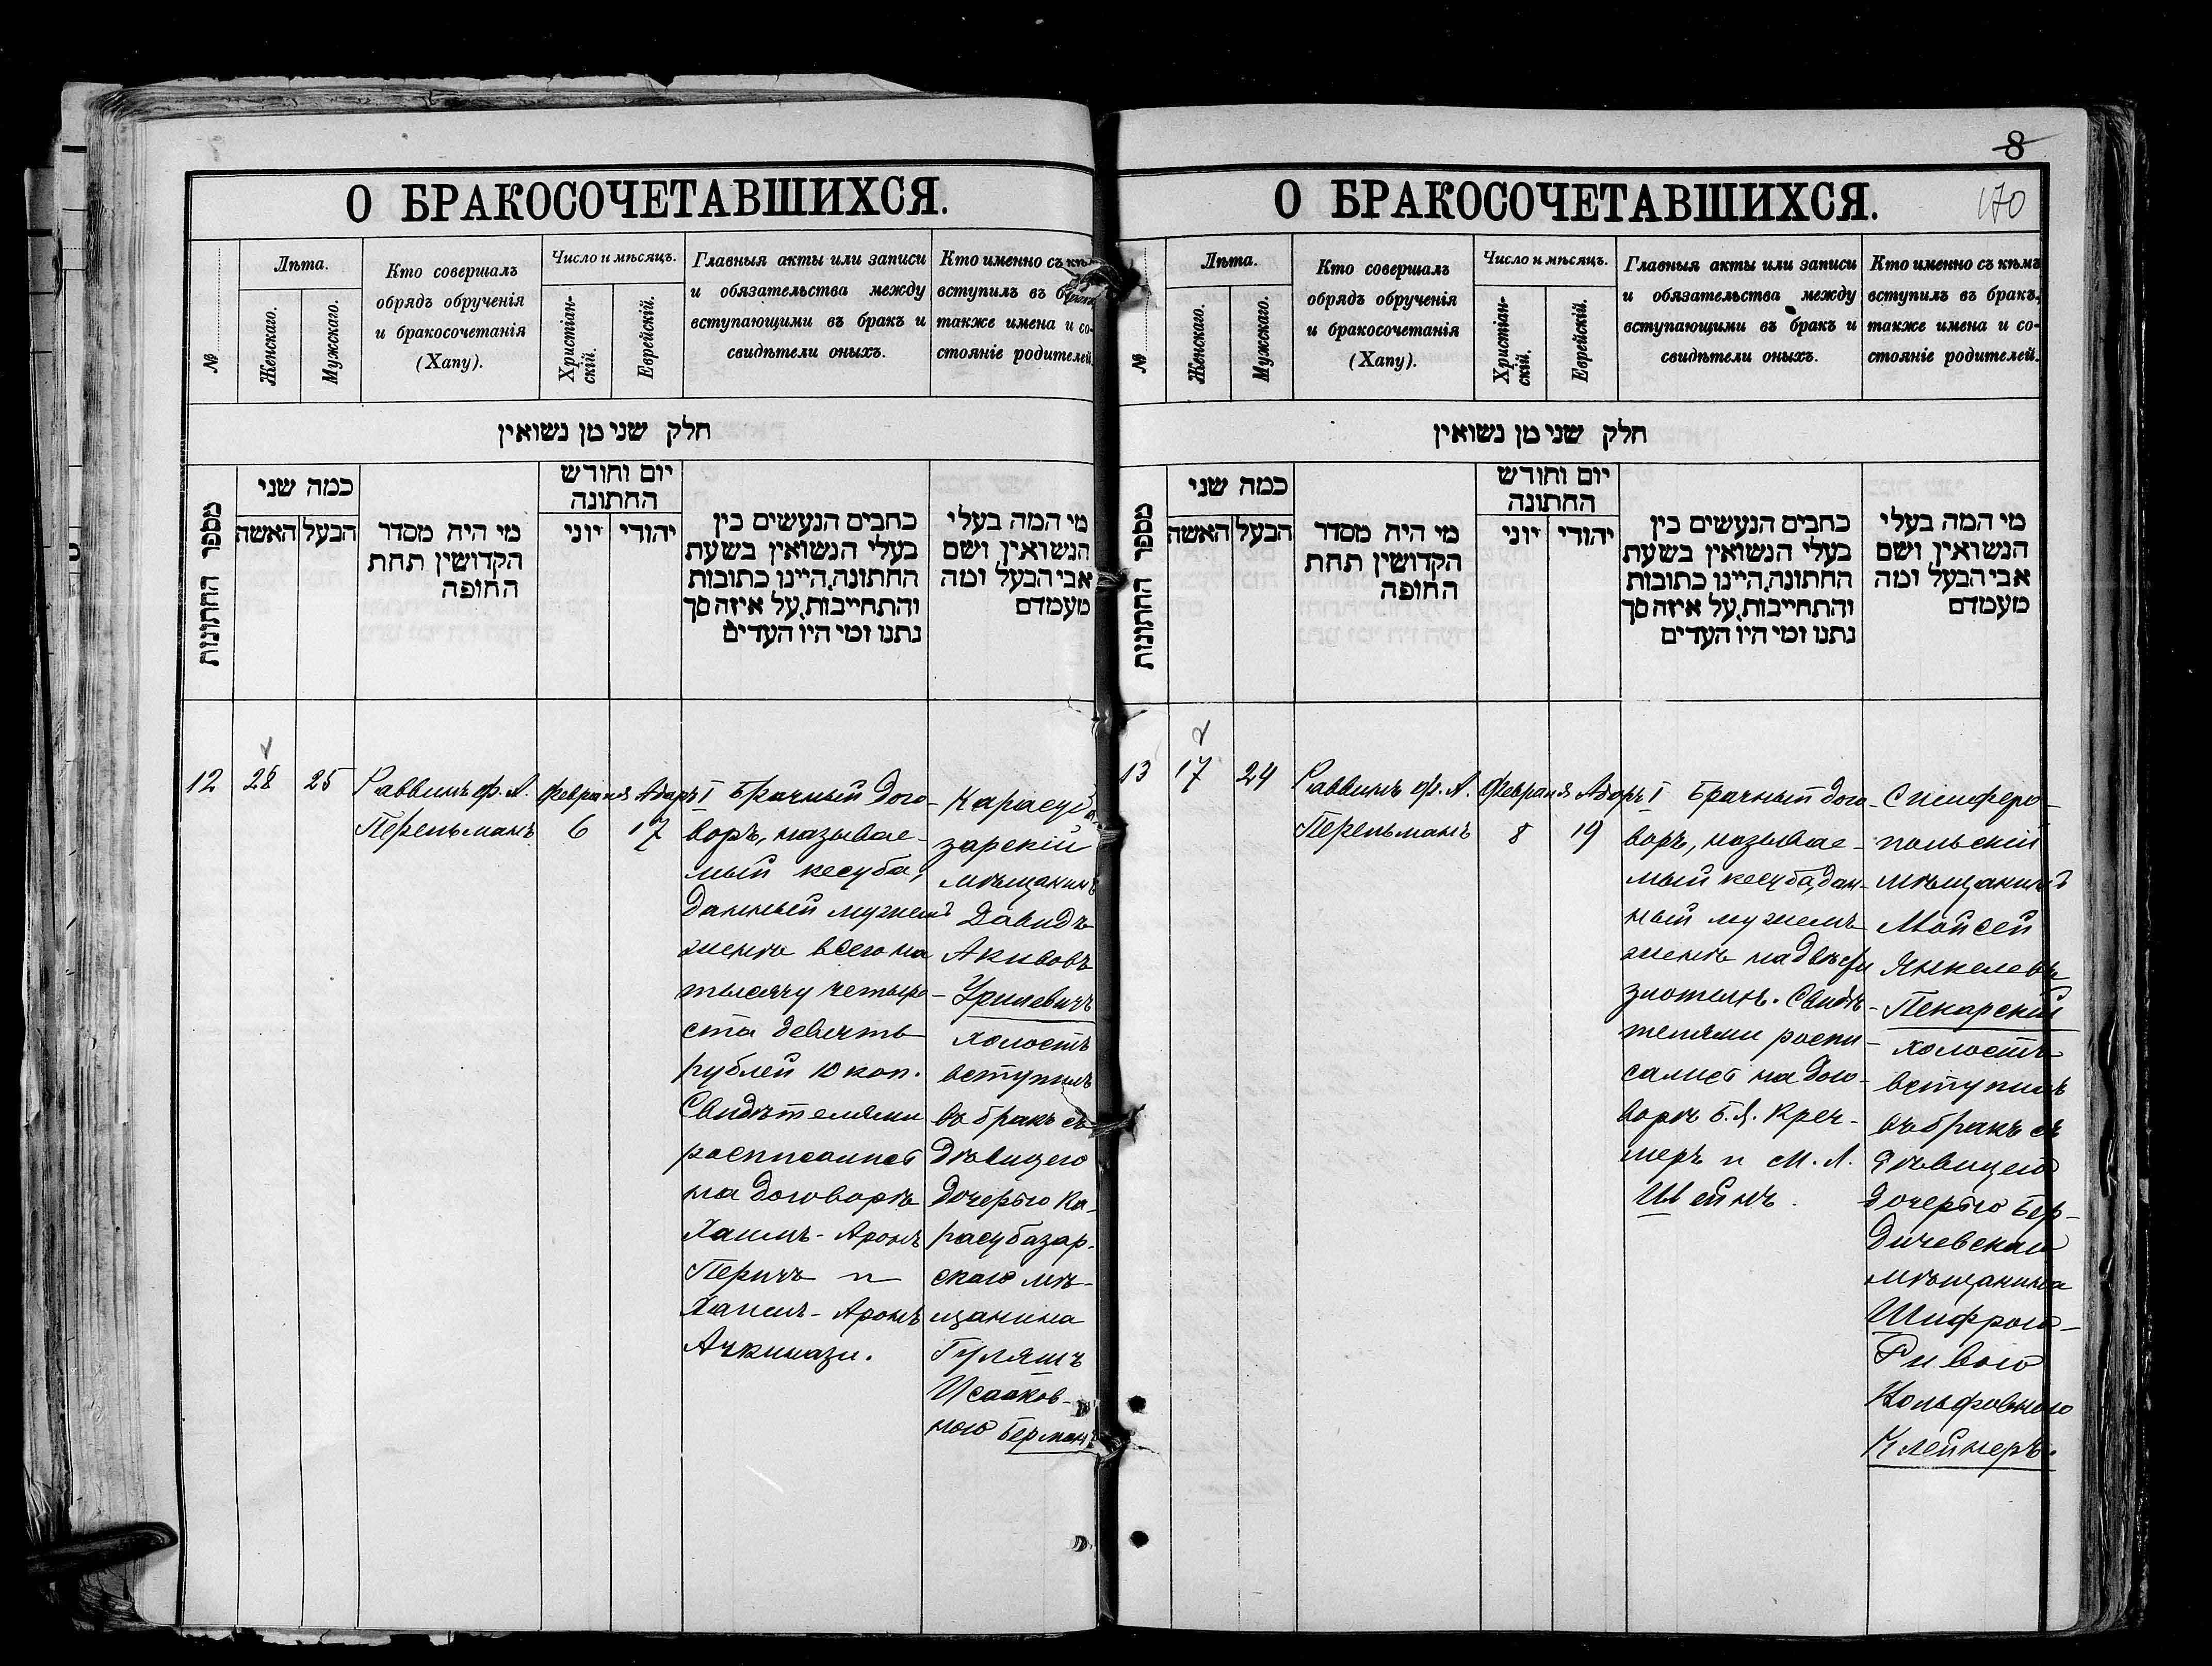 О БРАКОСОЧЕТАВШИХСЯ.
№
Лѣта.
Женскаго.
Мужскаго.
Кто совершалъ
обрядъ обрученія
и бракосочетанія
(Хапу).
Число и мѣсяцъ.
Христіан-
скій.
Еврейскій.
Главныя акты или записи
и обязательства между
вступающими въ бракъ и
свидѣтели оныхъ.
Кто именно съ
вступилъ въ
также имена и со-
стояніе родителей.
חלק שני מן נשואין
מספר החתונות
כמה שני
האשה
הבעל
מי היה מסדר
הקדושין תחת
החופה
יום וחודש
החתונה
יוני
יהודי
כתבים הנעשים בין
בעלי הנשואין בשעת
החתונה, היינו כתובות
והתחייבות, על איזה סך
נתנו ומי היו העדים
מי המה בעלי
הנשואין ושם
אבי הבעל ומה
מעמדם
12
28
25
Раввинъ Ф. А.
Перельманъ
Февраля
6
Адаръ I
17
Брачный дого-
воръ, называе-
мый кесуба,
данный мужемъ
женѣ всего на
тысячу четыре-
ста девять
рублей 10 коп.
Свидѣтелями
росписались
на договорѣ
Хаимъ-Аронъ
Перичъ и
Хаимъ-Аронъ
Ачкинази.
Карасуба-
зарскій
мѣщанинъ
Давидъ
Акивовъ
Урилевичъ
холостъ
вступилъ
въ бракъ съ
дѣвицею
дочерью Ка-
расубазар-
скаго мѣ-
щанина
Гулямъ
Исааков-
ною Берманъ
8
170
О БРАКОСОЧЕТАВШИХСЯ.
№
Лѣта.
Женскаго.
Мужскаго.
Кто совершалъ
обрядъ обрученія
и бракосочетанія
(Хапу).
Число и мѣсяцъ.
Христіан-
скій.
Еврейскій.
Главныя акты или записи
и обязательства между
вступающими въ бракъ и
свидѣтели оныхъ.
Кто именно съ кѣмъ
вступилъ въ бракъ,
также имена и со-
стояніе родителей.
חלק שני מן נשואין
מספר החתונות
כמה שני
האשה
הבעל
מי היה מסדר
הקדושין תחת
החופה
יום וחודש
החתונה
יוני
יהודי
כתבים הנעשים בין
בעלי הנשואין בשעת
החתונה, היינו כתובות
והתחייבות, על איזה סך
נתנו ומי היו העדים
מי המה בעלי
הנשואין ושם
אבי הבעל ומה
מעמדם
13
17
24
Раввинъ Ф. А.
Перельманъ
Февраля
8
Адаръ I
19
Брачный дого-
воръ, называе-
мый кесуба, дан-
ный мужемъ
женѣ на двѣсти
злотыхъ. Свидѣ-
телями роспи-
сались на дого-
ворѣ Б. Я. Креч-
меръ и М. Л.
Штейнъ.
Симферо-
польскій
мѣщанинъ
Мойсей
Янкелевъ
Пекарскій
холостъ
вступилъ
въ бракъ съ
дѣвицею
дочерью Бер-
дичевскаго
мѣщанина
Шифрою-
Ривою
Вольфовною
Клейнеръ.